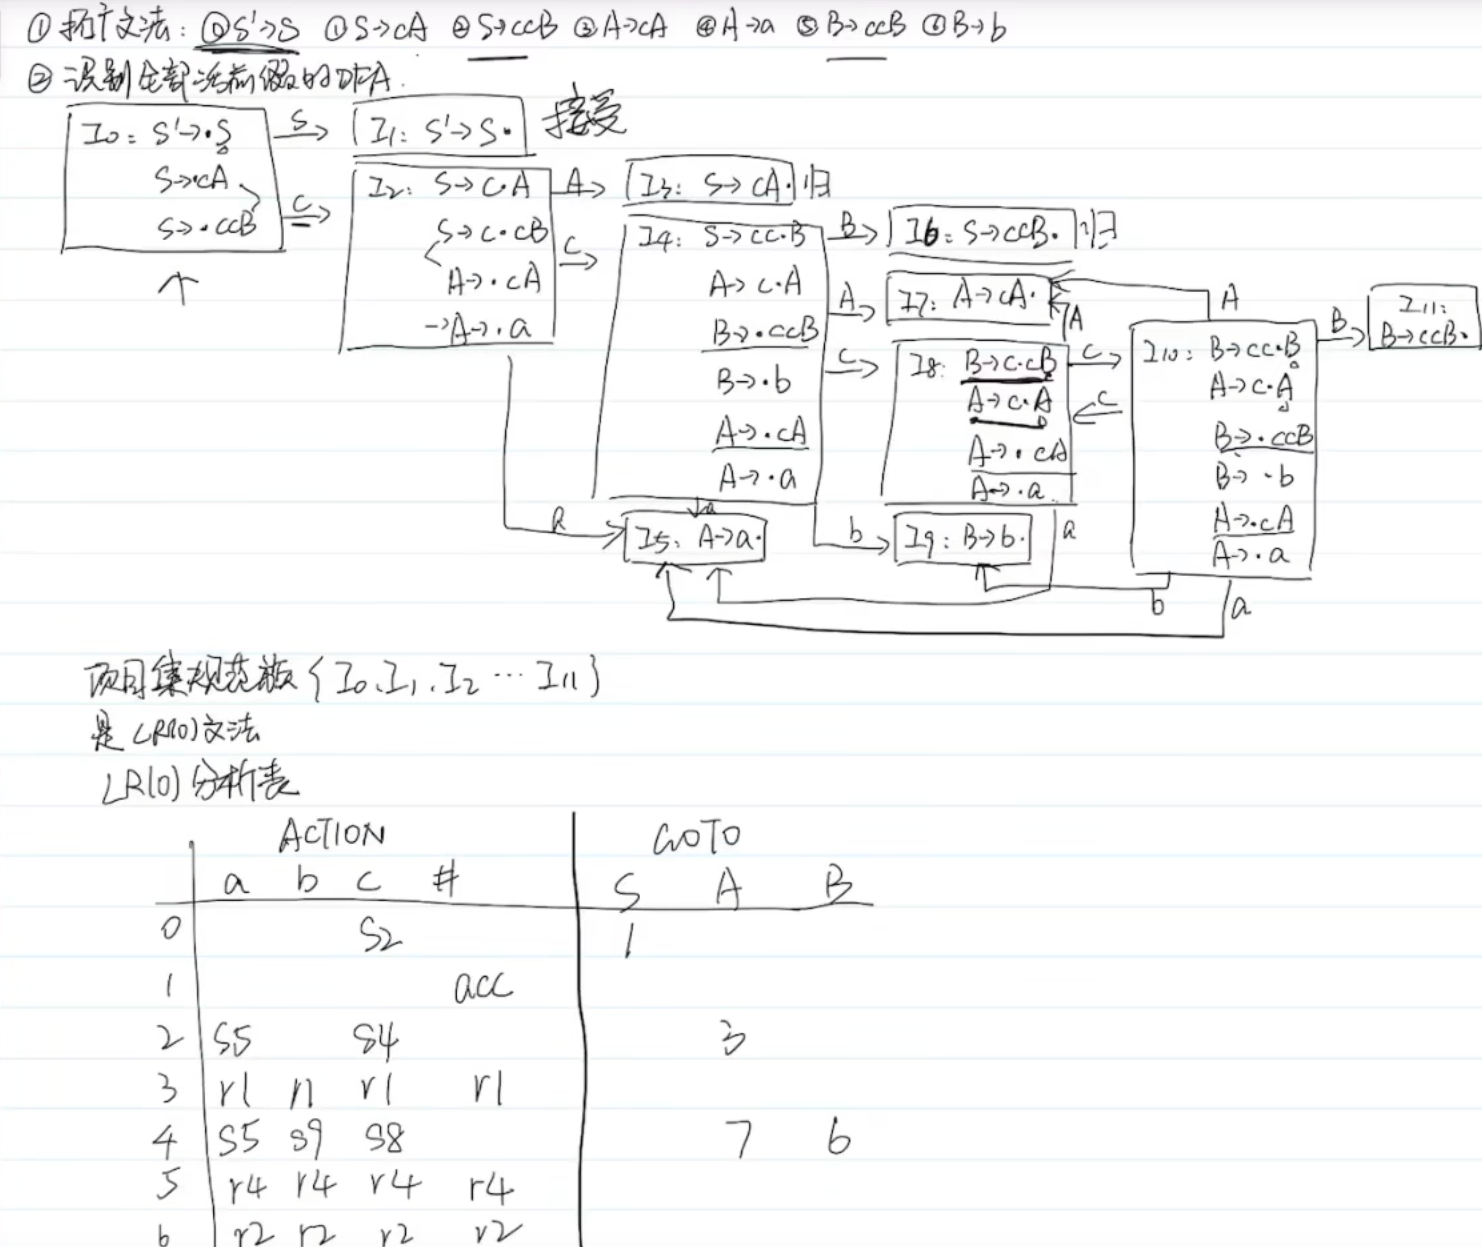 ① 拓广文法: ⓪S'→S ①S→cA ②S→ccB ③A→cA ④A→a ⑤B→ccB ⑥B→b
② 识别全部活前缀的DFA.
I0: S'→·S
S→·cA
S→·ccB
S
c
I1: S'→S·
接受
I2: S→c·A
S→c·cB
A→·cA
→A→·a
A
c
a
I3: S→cA·
归
I4: S→cc·B
A→c·A
B→·ccB
B→·b
A→·cA
A→·a
B
A
c
a
b
I5: A→a·
I6: S→ccB·
归
I7: A→cA·
A
I8: B→c·cB
A→c·A
A→·cA
A→·a
c
c
a
I9: B→b·
I10: B→cc·B
A→c·A
B→·ccB
B→·b
A→·cA
A→·a
A
B
b
a
I11:
B→ccB·
项目集规范族{I0、I1、I2 ⋯ I11}
是LR(0)文法
LR(0)分析表
ACTION GOTO
a b c # S A B
0 S2 1
1 acc
2 S5 S4 3
3 r1 r1 r1 r1
4 S5 S9 S8 7 6
5 r4 r4 r4 r4
6 r2 r2 r2 r2